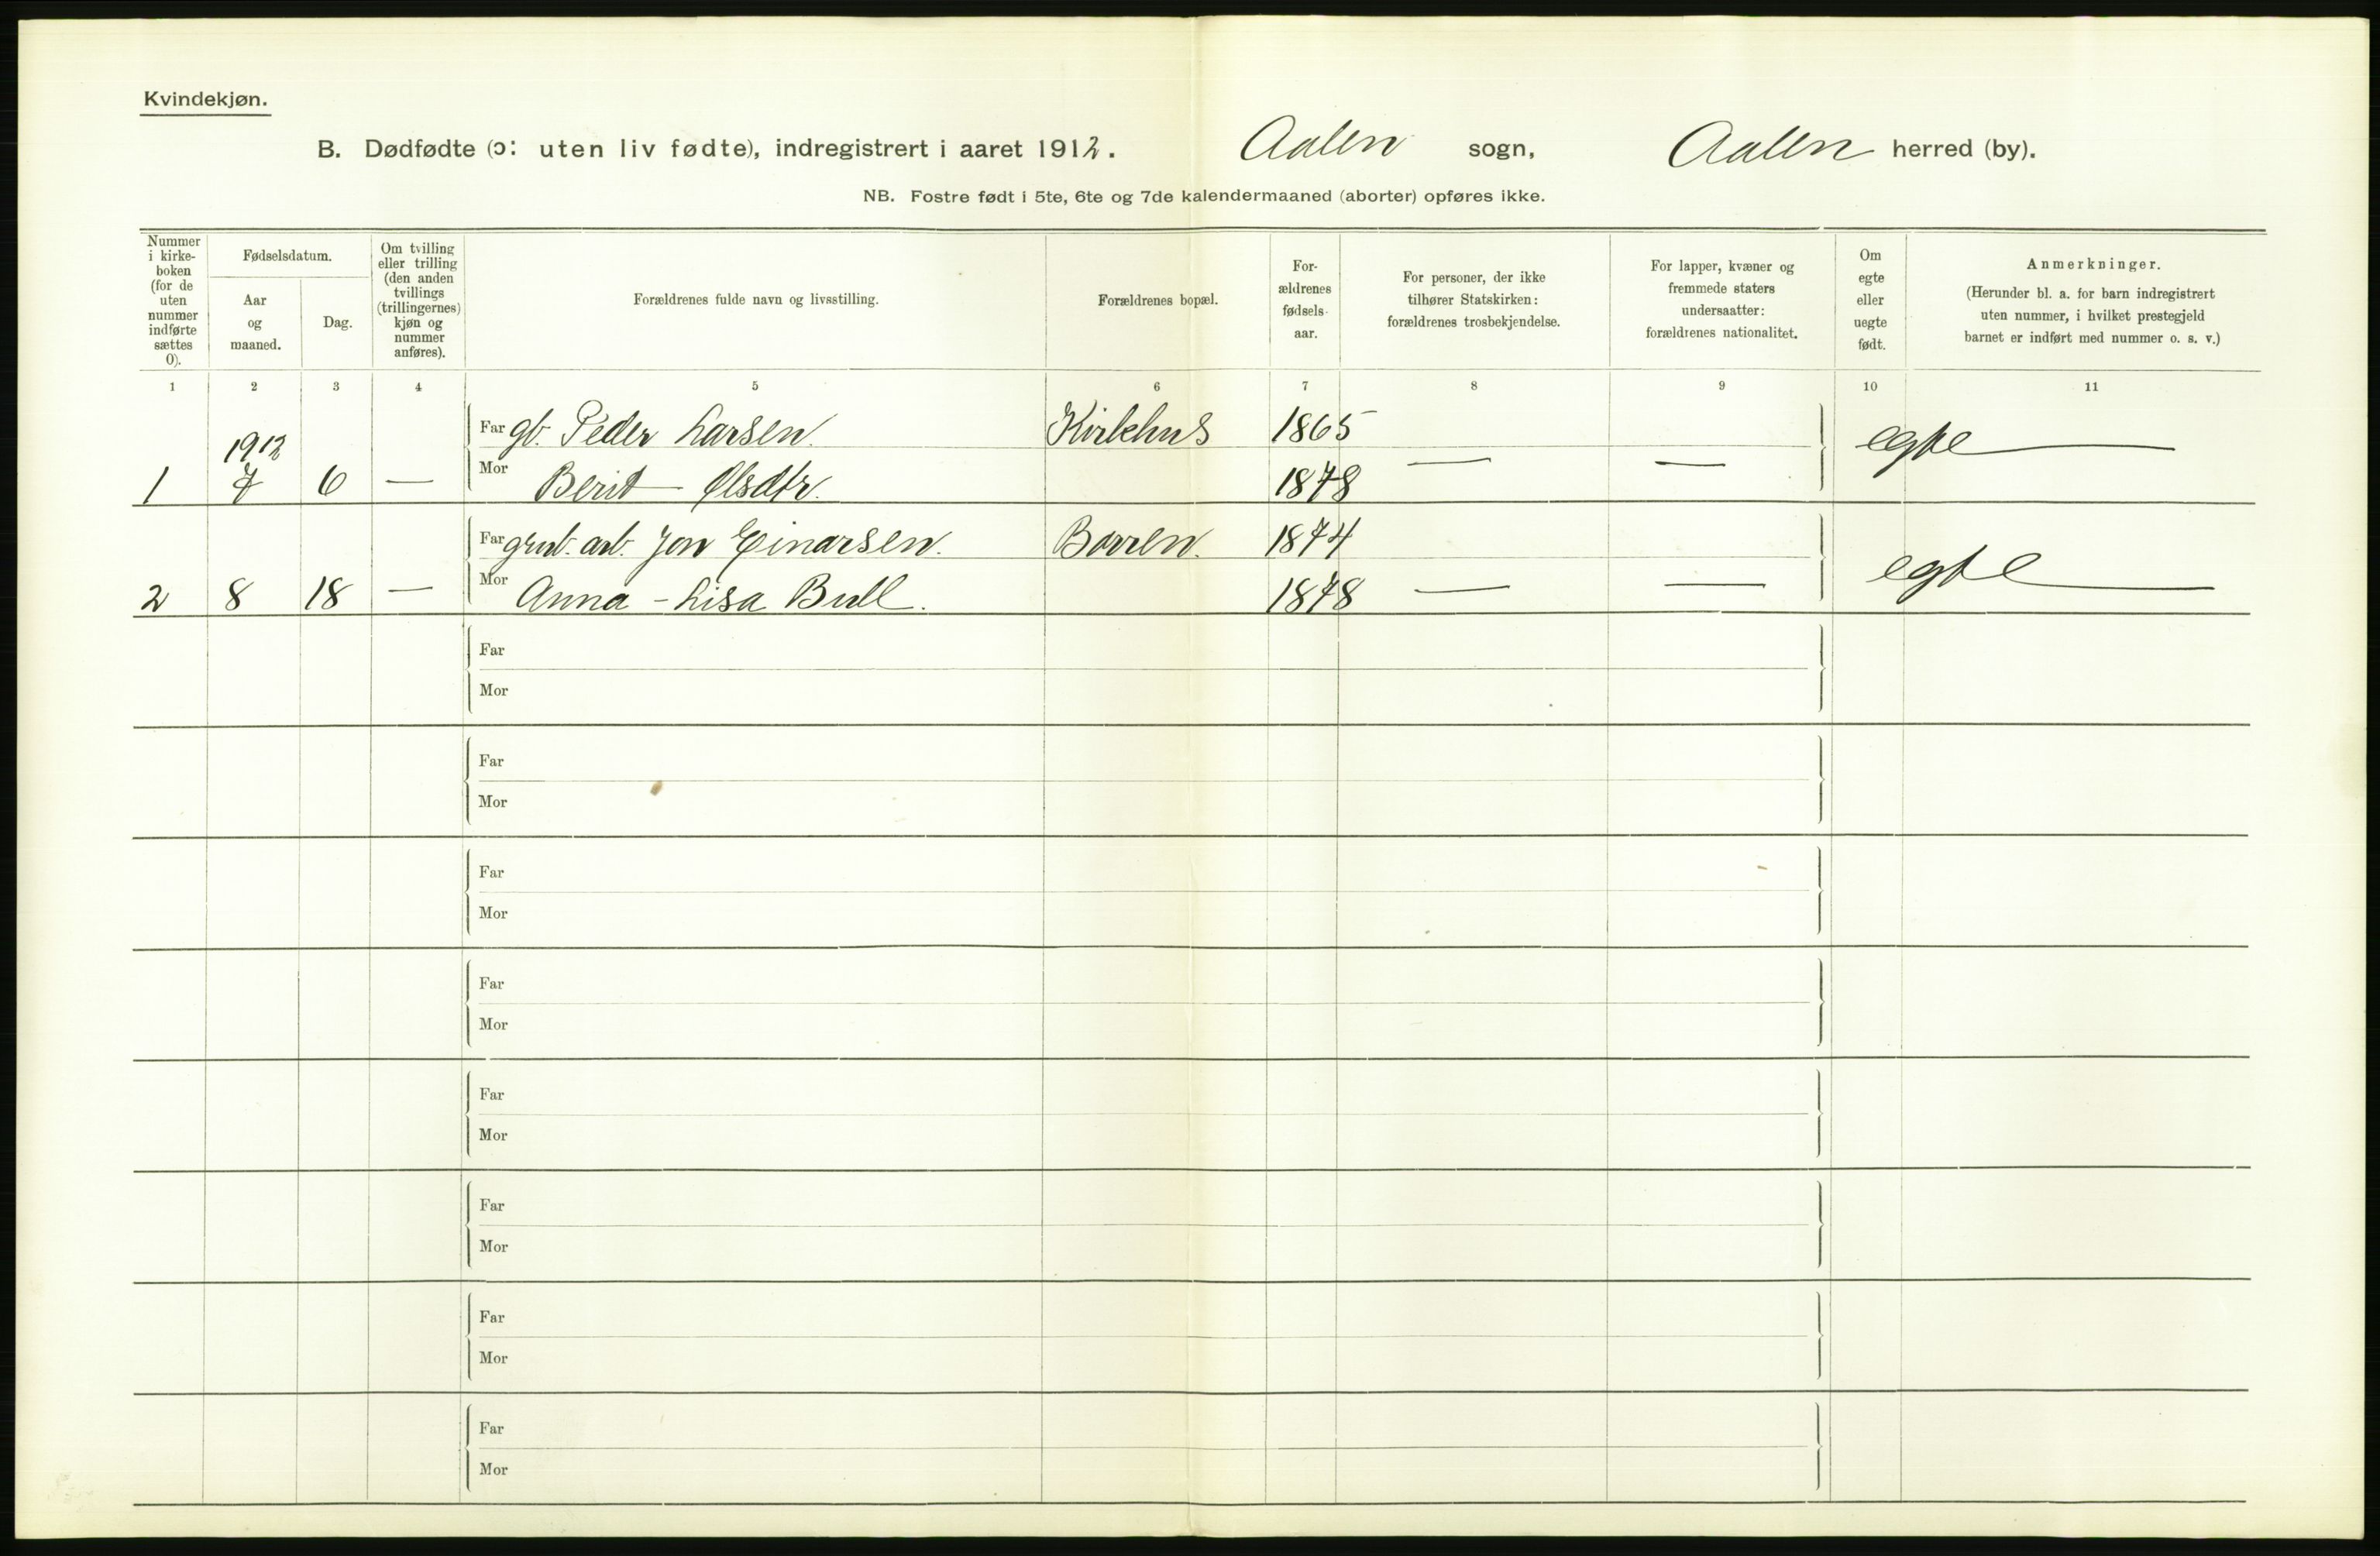 Kvindekjøn.
B. Dødfødte (ɔ: uten liv fødte), indregistrert i aaret 1912. Aalen sogn, Aalen herred (by).
NB. Fostre født i 5te, 6te og 7de kalendermaaned (aborter) opføres ikke.
Nummer
i kirke-
boken
(for de
uten
nummer
indførte
sættes
0).
Fødselsdatum.
Aar
og
maaned.
Dag.
Om tvilling
eller trilling
(den anden
tvillings
(trillingernes)
kjøn og
nummer
anføres).
Forældrenes fulde navn og livsstilling.
Forældrenes bopæl.
For-
ældrenes
fødsels-
aar.
For personer, der ikke
tilhører Statskirken:
forældrenes trosbekjendelse.
For lapper, kvæner og
fremmede staters
undersaatter:
forældrenes nationalitet.
Om
egte
eller
uegte
født.
Anmerkninger.
(Herunder bl. a. for barn indregistrert
uten nummer, i hvilket prestegjeld
barnet er indført med nummer o. s. v.)
1 2 3 4 5 6 7 8 9 10 11
Far gb. Peder Larsen. Kirkhus 1865
1912
1 7 6 — Mor Berit Olsdtr. 1878 — — egte
Far grub. arb. Jon Einarsen. 1874
2 8 18 — Mor Anna-Lisa Bull. 1878 — — egte
Far
Mor
Far
Mor
Far
Mor
Far
Mor
Far
Mor
Far
Mor
Far
Mor
Far
Mor